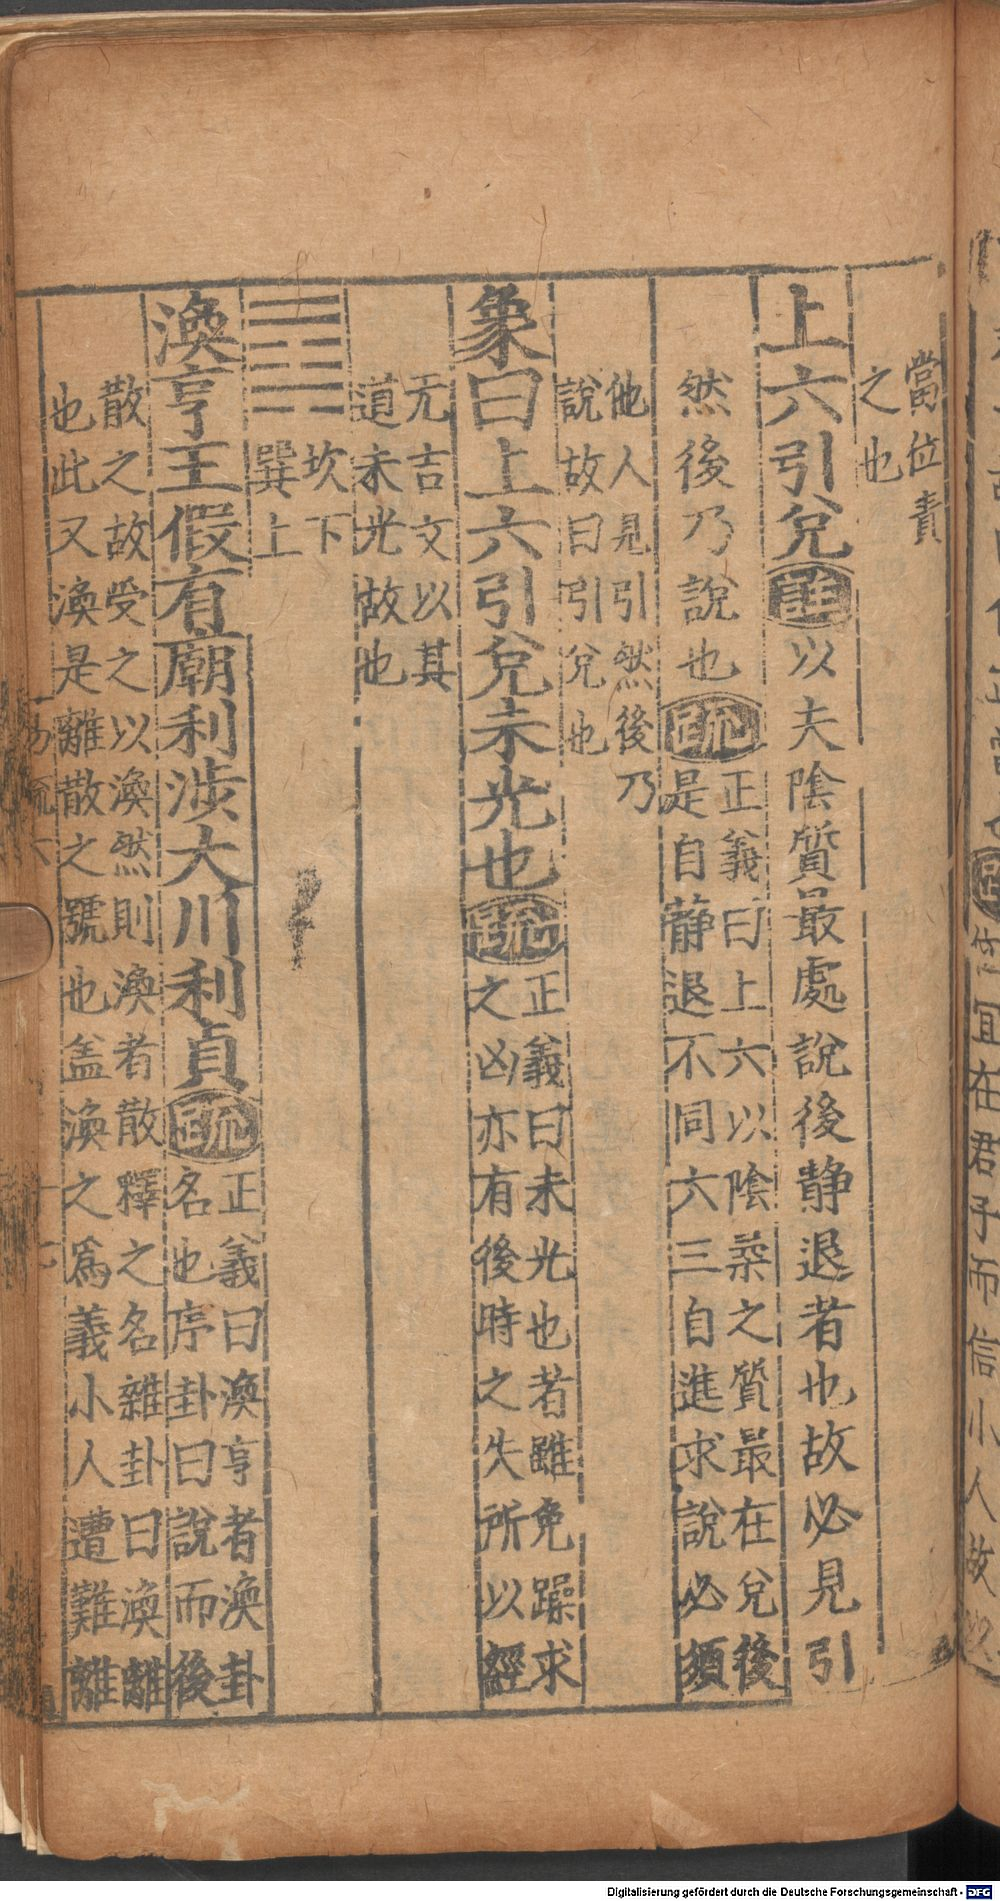 當位責
之也
上六引兌 註 以夫陰質最處說後静退者也故必見引
然後乃說也 疏 正義曰上六以陰柔之質最在兌後
是自静退不同六三自進求說必須
他人見引然後乃
說故曰引兌也
象曰上六引兌未光也 疏 正義曰未光也者雖免躁求
之凶亦有後時之失所以經
无吉文以其
道未光故也
䷺ 坎下
巽上
渙亨王假有廟利涉大川利貞 疏 正義曰渙亨者渙卦
名也序卦曰說而後
散之故受之以渙然則渙者散釋之名雜卦曰渙離
也此又渙是離散之號也盖渙之爲義小人遭難離
易疏六
宜在君子而信小人故
Digitalisierung gefördert durch die Deutsche Forschungsgemeinschaft - DFG